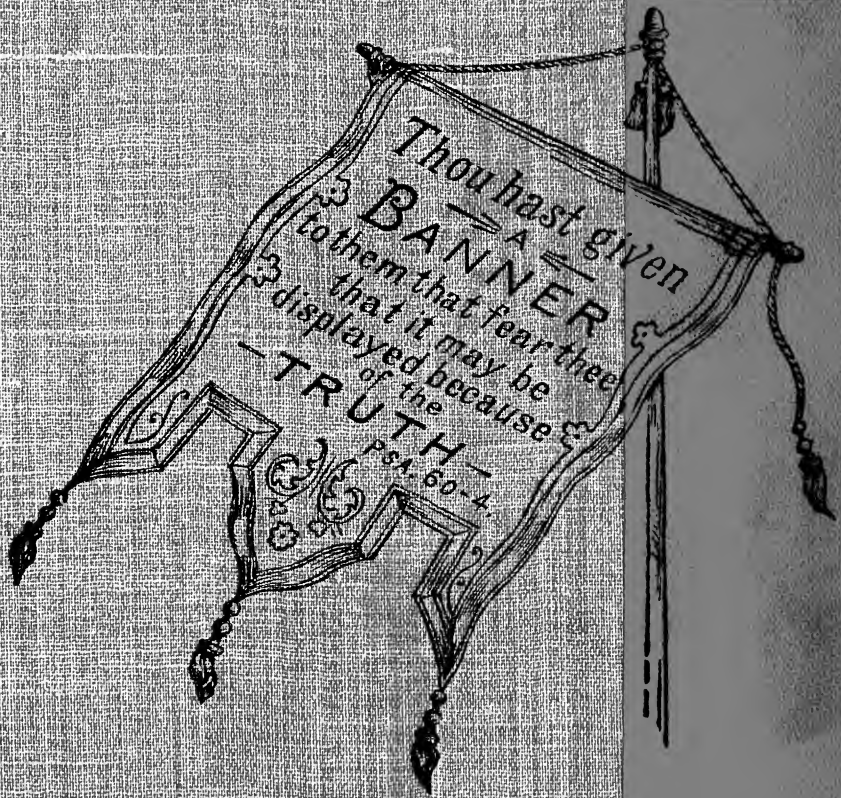 Thou hast given
A
BANNER
to them that fear thee
that it may be
displayed because
of the
-TRUTH-
PSA. 60-4.